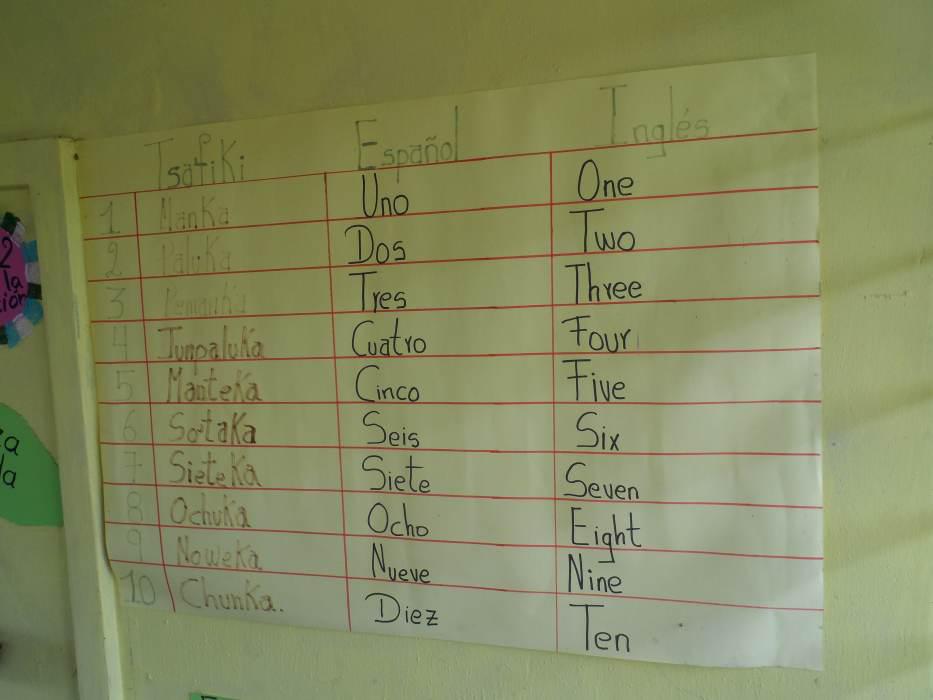 Tsafiki Español Inglés
1 Manka Uno One
2 Paluka Dos Two
3 Pemanka Tres Three
4 Junpaluka Cuatro Four
5 Manteka Cinco Five
6 Sotaka Seis Six
7 Sieteka Siete Seven
8 Ochuka Ocho Eight
9 Noweka Nueve Nine
10 Chunka. Diez Ten
2
la
ción
za
la